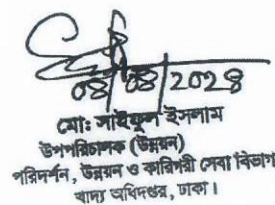 ০৪/০৪/২০২৪
মো: সাইফুল ইসলাম
উপপরিচালক (উন্নয়ন)
পরিদর্শন, উন্নয়ন ও কারিগরী সেবা বিভাগ
খাদ্য অধিদপ্তর, ঢাকা।